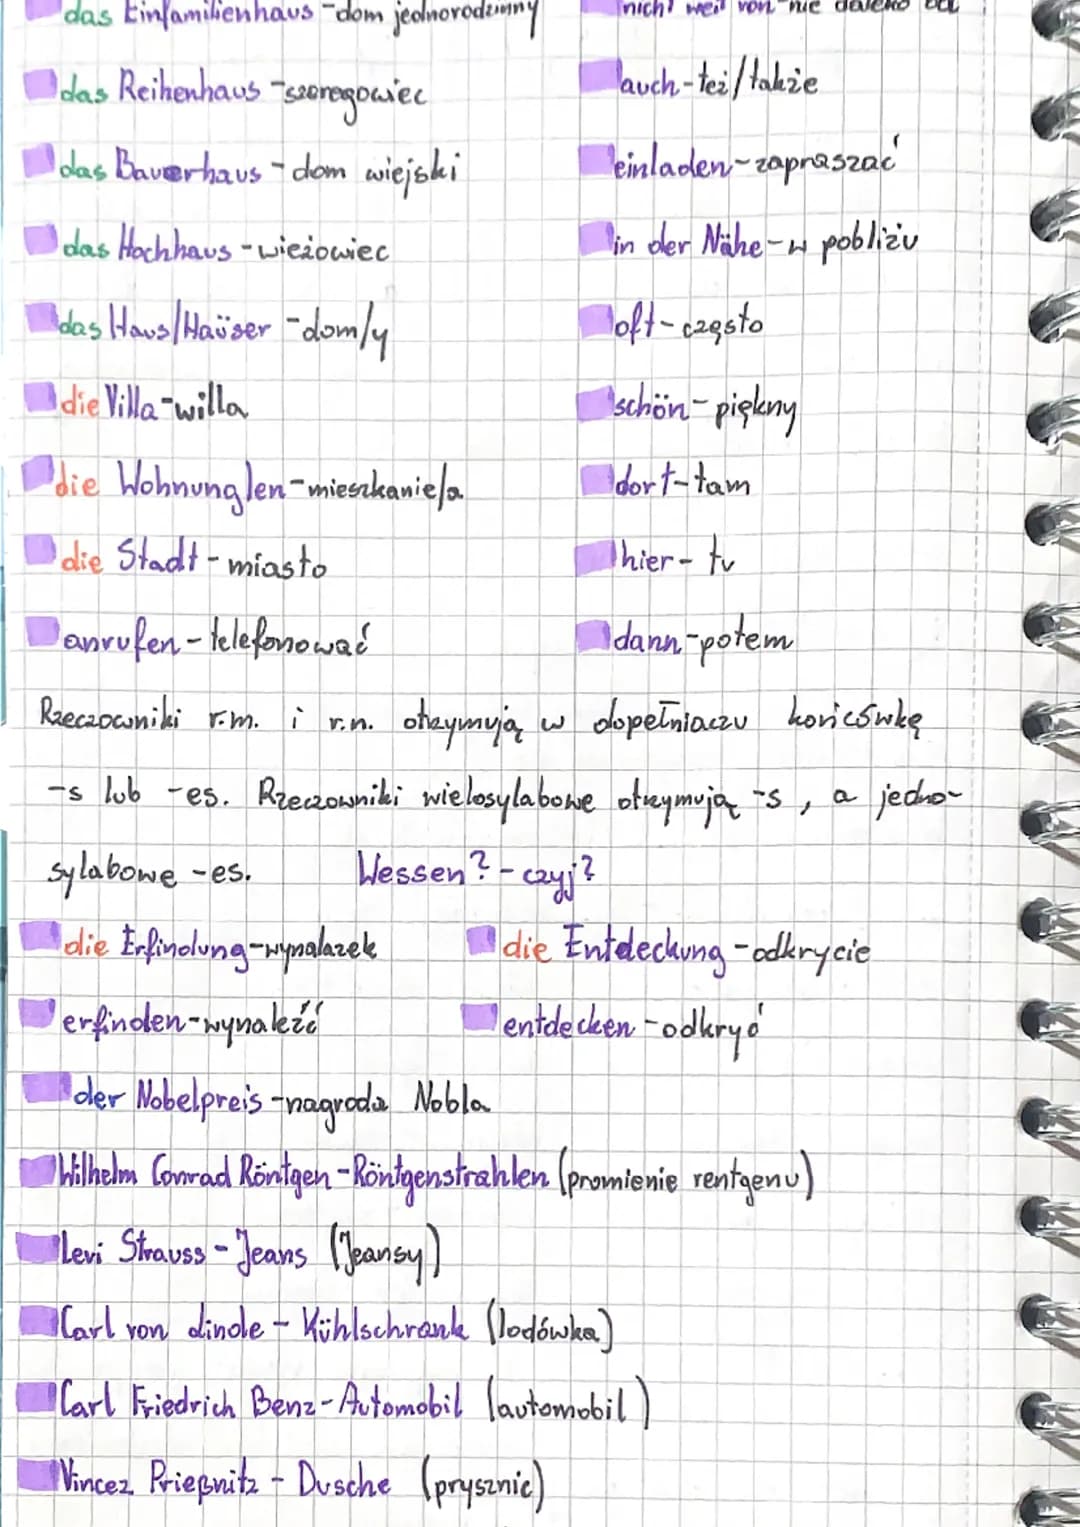 das Einfamilienhaus - dom jednorodzinny
das Reihenhaus - szeregowiec
das Bauerhaus - dom wiejski
das Hochhaus - wieżowiec
das Haus/Haüser - dom/y
die Villa - willa
die Wohnung/en - mieszkanie/a
die Stadt - miasto
anrufen - telefonować
nicht weit von - nie daleko od
auch - też/także
einladen - zapraszać
in der Nähe - w pobliżu
oft - często
schön - piękny
dort - tam
hier - tu
dann - potem
Rzeczowniki r.m. i r.n. otrzymują w dopełniaczu końcówkę
-s lub -es. Rzeczowniki wielosylabowe otrzymują -s, a jedno-
sylabowe -es. Wessen? - czyj?
die Erfindung - wynalazek
die Entdeckung - odkrycie
erfinden - wynaleźć
entdecken - odkryć
der Nobelpreis - nagroda Nobla
Wilhelm Conrad Röntgen - Röntgenstrahlen (promienie rentgenu)
Levi Strauss - Jeans (Jeansy)
Carl von Linde - Kühlschrank (lodówka)
Carl Friedrich Benz - Automobil (automobil)
Vincez Prießnitz - Dusche (prysznic)